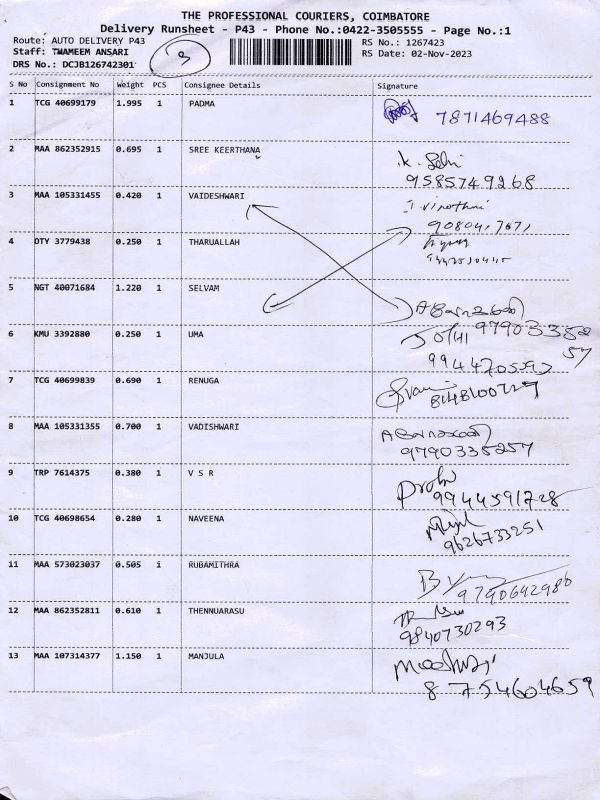 THE PROFESSIONAL COURIERS, COIMBATORE
Delivery Runsheet - P43 - Phone No.:0422-3505555 - Page No.:1
Route: AUTO DELIVERY P43
RS No.: 1267423
Staff: THAMEEM ANSARI
RS Date: 02-Nov-2023
DRS No.: DCJB126742301
3
S No Consignment No Weight PCS Consignee Details Signature
1 TCG 40699179 1.995 1 PADMA 7871469488
2 MAA 862352915 0.695 1 SREE KEERTHANA K. Selvi
9585749268
3 MAA 105331455 0.420 1 VAIDESHWARI
4 DTY 3779438 0.250 1 THARUALLAH
5 NGT 40071684 1.220 1 SELVAM
9790335257
6 KMU 3392880 0.250 1 UMA JOTHI
7 TCG 40699839 0.690 1 RENUGA
8 MAA 105331355 0.700 1 VADISHWARI
9790335257
9 TRP 7614375 0.380 1 V S R
9944591728
10 TCG 40698654 0.280 1 NAVEENA
9626733251
11 MAA 573023037 0.505 1 RUBAMITHRA
9790642986
12 MAA 862352811 0.610 1 THENNUARASU
9840730293
13 MAA 107314377 1.150 1 MANJULA
8754604659